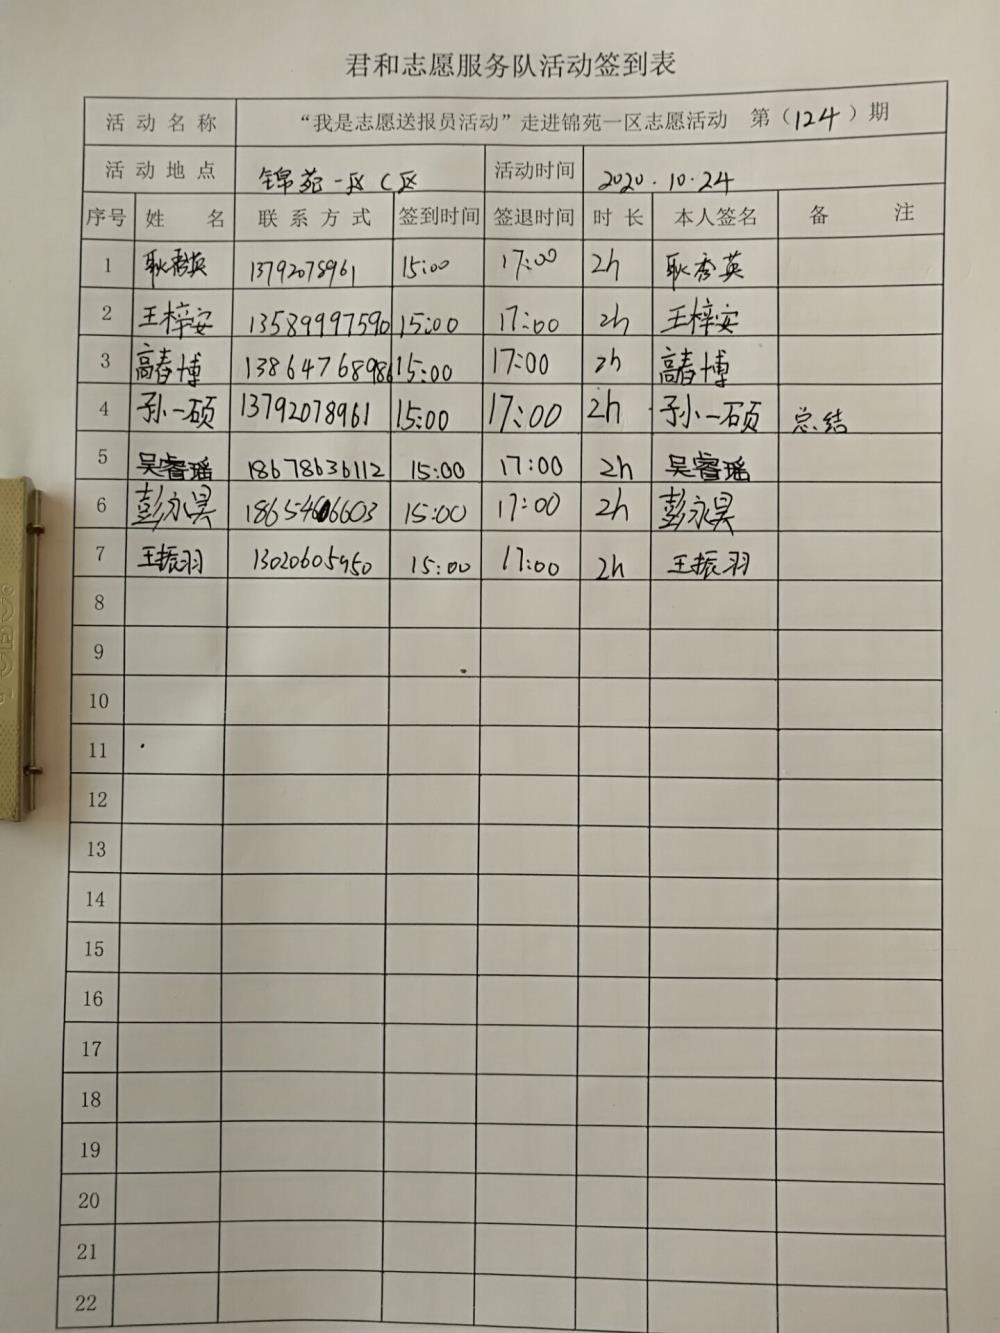 君和志愿服务队活动签到表
活动名称 “我是志愿送报员活动”走进锦苑一区志愿活动 第（124）期
活动地点 锦苑一区C区 活动时间 2020.10.24
序号 姓名 联系方式 签到时间 签退时间 时长 本人签名 备注
1 耿秀英 13792078961 15:00 17:00 2h 耿秀英
2 王梓安 13589997590 15:00 17:00 2h 王梓安
3 高春博 13864768986 15:00 17:00 2h 高春博
4 孙一硕 13792078961 15:00 17:00 2h 孙一硕 总结
5 吴睿瑶 18678636112 15:00 17:00 2h 吴睿瑶
6 彭永昊 18654606603 15:00 17:00 2h 彭永昊
7 王振羽 13020605950 15:00 17:00 2h 王振羽
8
9
10
11
12
13
14
15
16
17
18
19
20
21
22